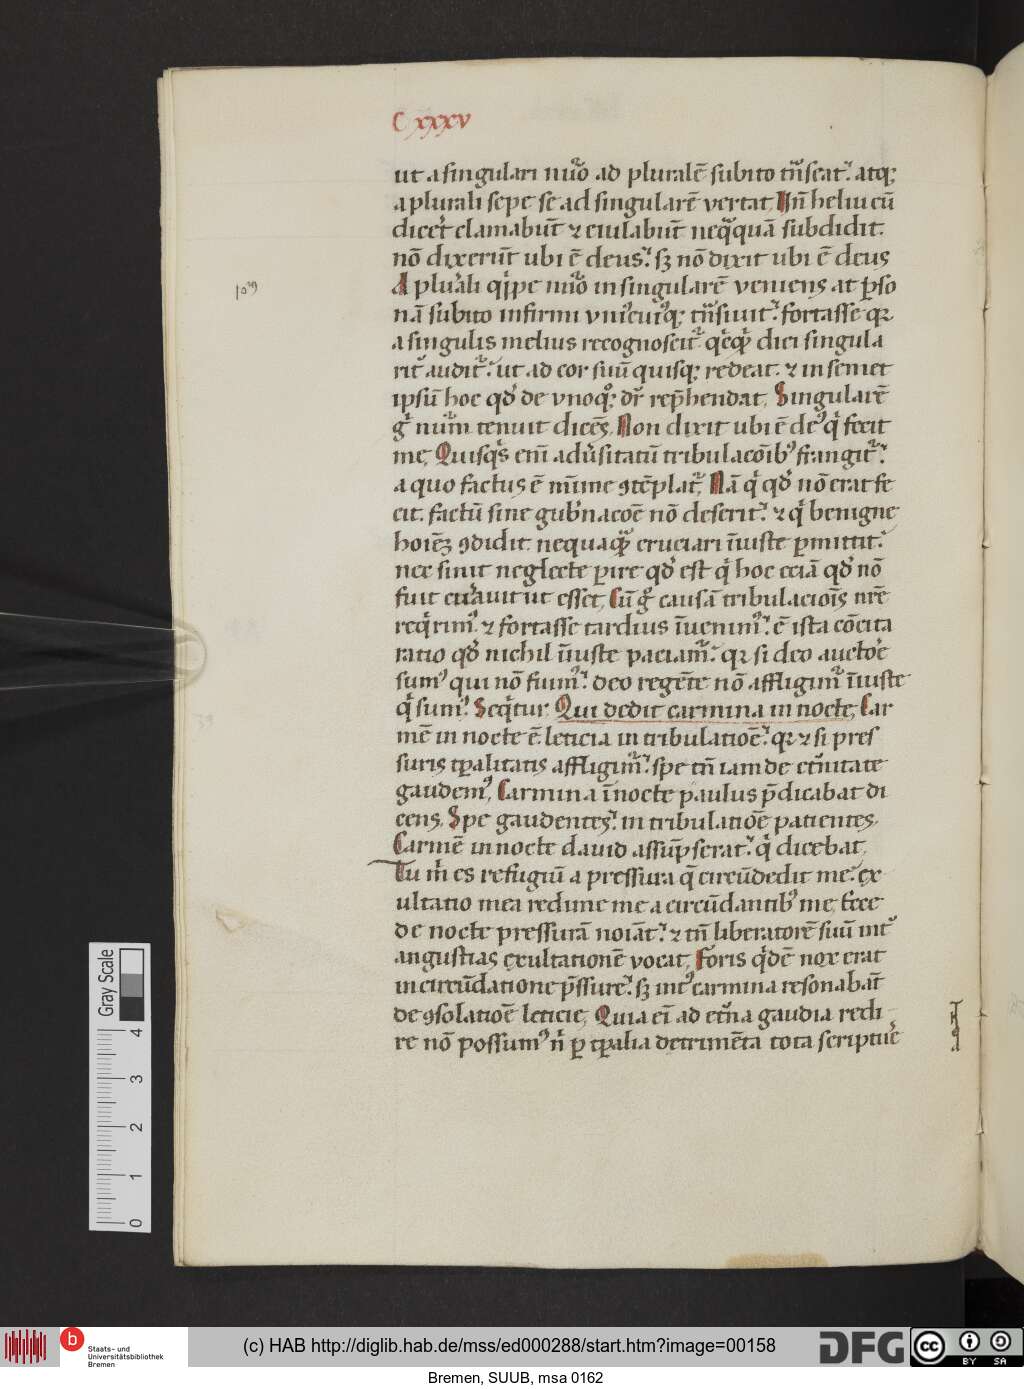 C xxxv
ut a singulari nūo ad pluralē subito tn̄seat. atq;
a plurali sepe se ad singularē vertat. Nn̄ heliu cū
dicet clamabūt ⁊ eiulabūt neq̄quā subdidit.
nō dixerūt ubi ē deus. sꝫ nō dixit ubi ē deus
A plurali q̍pe nūo in singularē veniens at p̲so
nā subito infirmi vniꝰcuiꝰq; tn̄siuit. fortasse qꝛ
a singulis melius recognoscit᷑ dici singula
rit᷑ audit᷑. ut ad cor suū quisq; redeat. ⁊ in semet
ipsū hoc qd̓ de vnoq; dr̄ rep̄hendat. Singularē
g̊ nūm tenuit dicēs. Non dixit ubi ē deꝰ q̍ fecit
me. Quisq̍s em̄ adūsitatū tribulacōibꝰ frangit᷑.
a quo factus ē mīme ꝯtēplat᷑. Nā q̍ qd̓ nō erat fe
cit. factū sine gubn̄acōe nō deserit. ⁊ q̍ benigne
hoiēꝫ ꝯdidit. nequaq̄ cruciari īiuste p̲mittit.
nec sinit neglecte p̲ire qd̓ est q̍ hoc eciā qd̓ nō
fuit curauit ut esset. Cū g̊ causā tribulacioīs nr̄e
req̍rimꝰ. ⁊ fortasse tardius īuenimꝰ. ē ista cōcita
ratio qd̓ nichil īiuste paciam᷑. qꝛ si deo auctoe
sumꝰ qui nō fuimꝰ. deo regēte nō affligim᷑ īiuste
q̍ sumꝰ. Seq̍tur. Qui dedit carmina in nocte. Car
mē in nocte ē. leticia in tribulatiōe. qꝛ ⁊ si pres
suris tp̲alitatis affligim᷑. spe tn̄ iam de etn̄itate
gaudemꝰ. Carmina ī nocte paulus p̄dicabat di
cens. Spe gaudentes. in tribulatiōe patientes.
Carmē in nocte dauid assūpserat. q̍ dicebat.
Tu m̍ es refugiū a pressura q̄ circūdedit me. ex
ultatio mea redime me a circūdantibꝰ me. Ecce
de nocte pressurā noīat. ⁊ tn̄ liberatorē suū int᷑
angustias exultationē vocat. Foris q̍dē nox erat
in circūdatione p̄ssure. sꝫ intꝰ carmina resonabāt
de ꝯsolatiōe leticie. Quia eī ad etn̄a gaudia redi
re nō possumꝰ n̍ p̲ tp̲alia detrimēta tota scripture
Gray Scale
4
3
2
1
0
b
Staats- und
Universitätsbibliothek
Bremen
(c) HAB http://diglib.hab.de/mss/ed000288/start.htm?image=00158
DFG
cc
BY SA
Bremen, SUUB, msa 0162